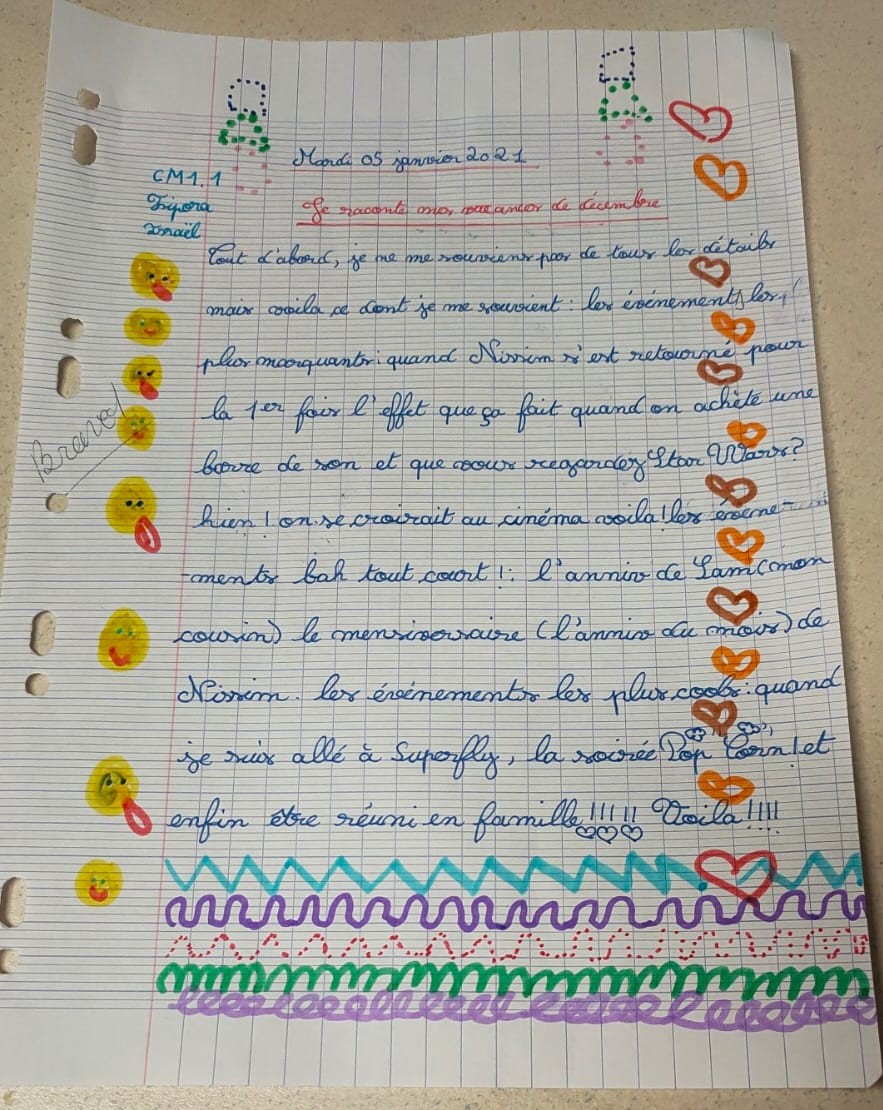 Mardi 05 janvier 2021
CM1.1
Tsipora
Ismaël
Je raconte mes vacances de décembre
Tout d'abord, je ne me souviens pas de tous les détails
mais voila ce dont je me souvient : les événements les
plus marquants : quand Nissim s'est retourné pour
la 1er fois l'effet que ça fait quand on achète une
barre de son et que vous regardez Star Wars?
hien ! on se croirait au cinéma voila ! les événe-
-ments bah tout court ! : l'anniv de Sam (mon
cousin) le mensiversaire (l'anniv du mois) de
Nissim. les événements les plus cools : quand
je suis allé à Superfly, la soirée Pop Corn ! et
enfin être réuni en famille !!!!! Voila !!!!
Bravo !